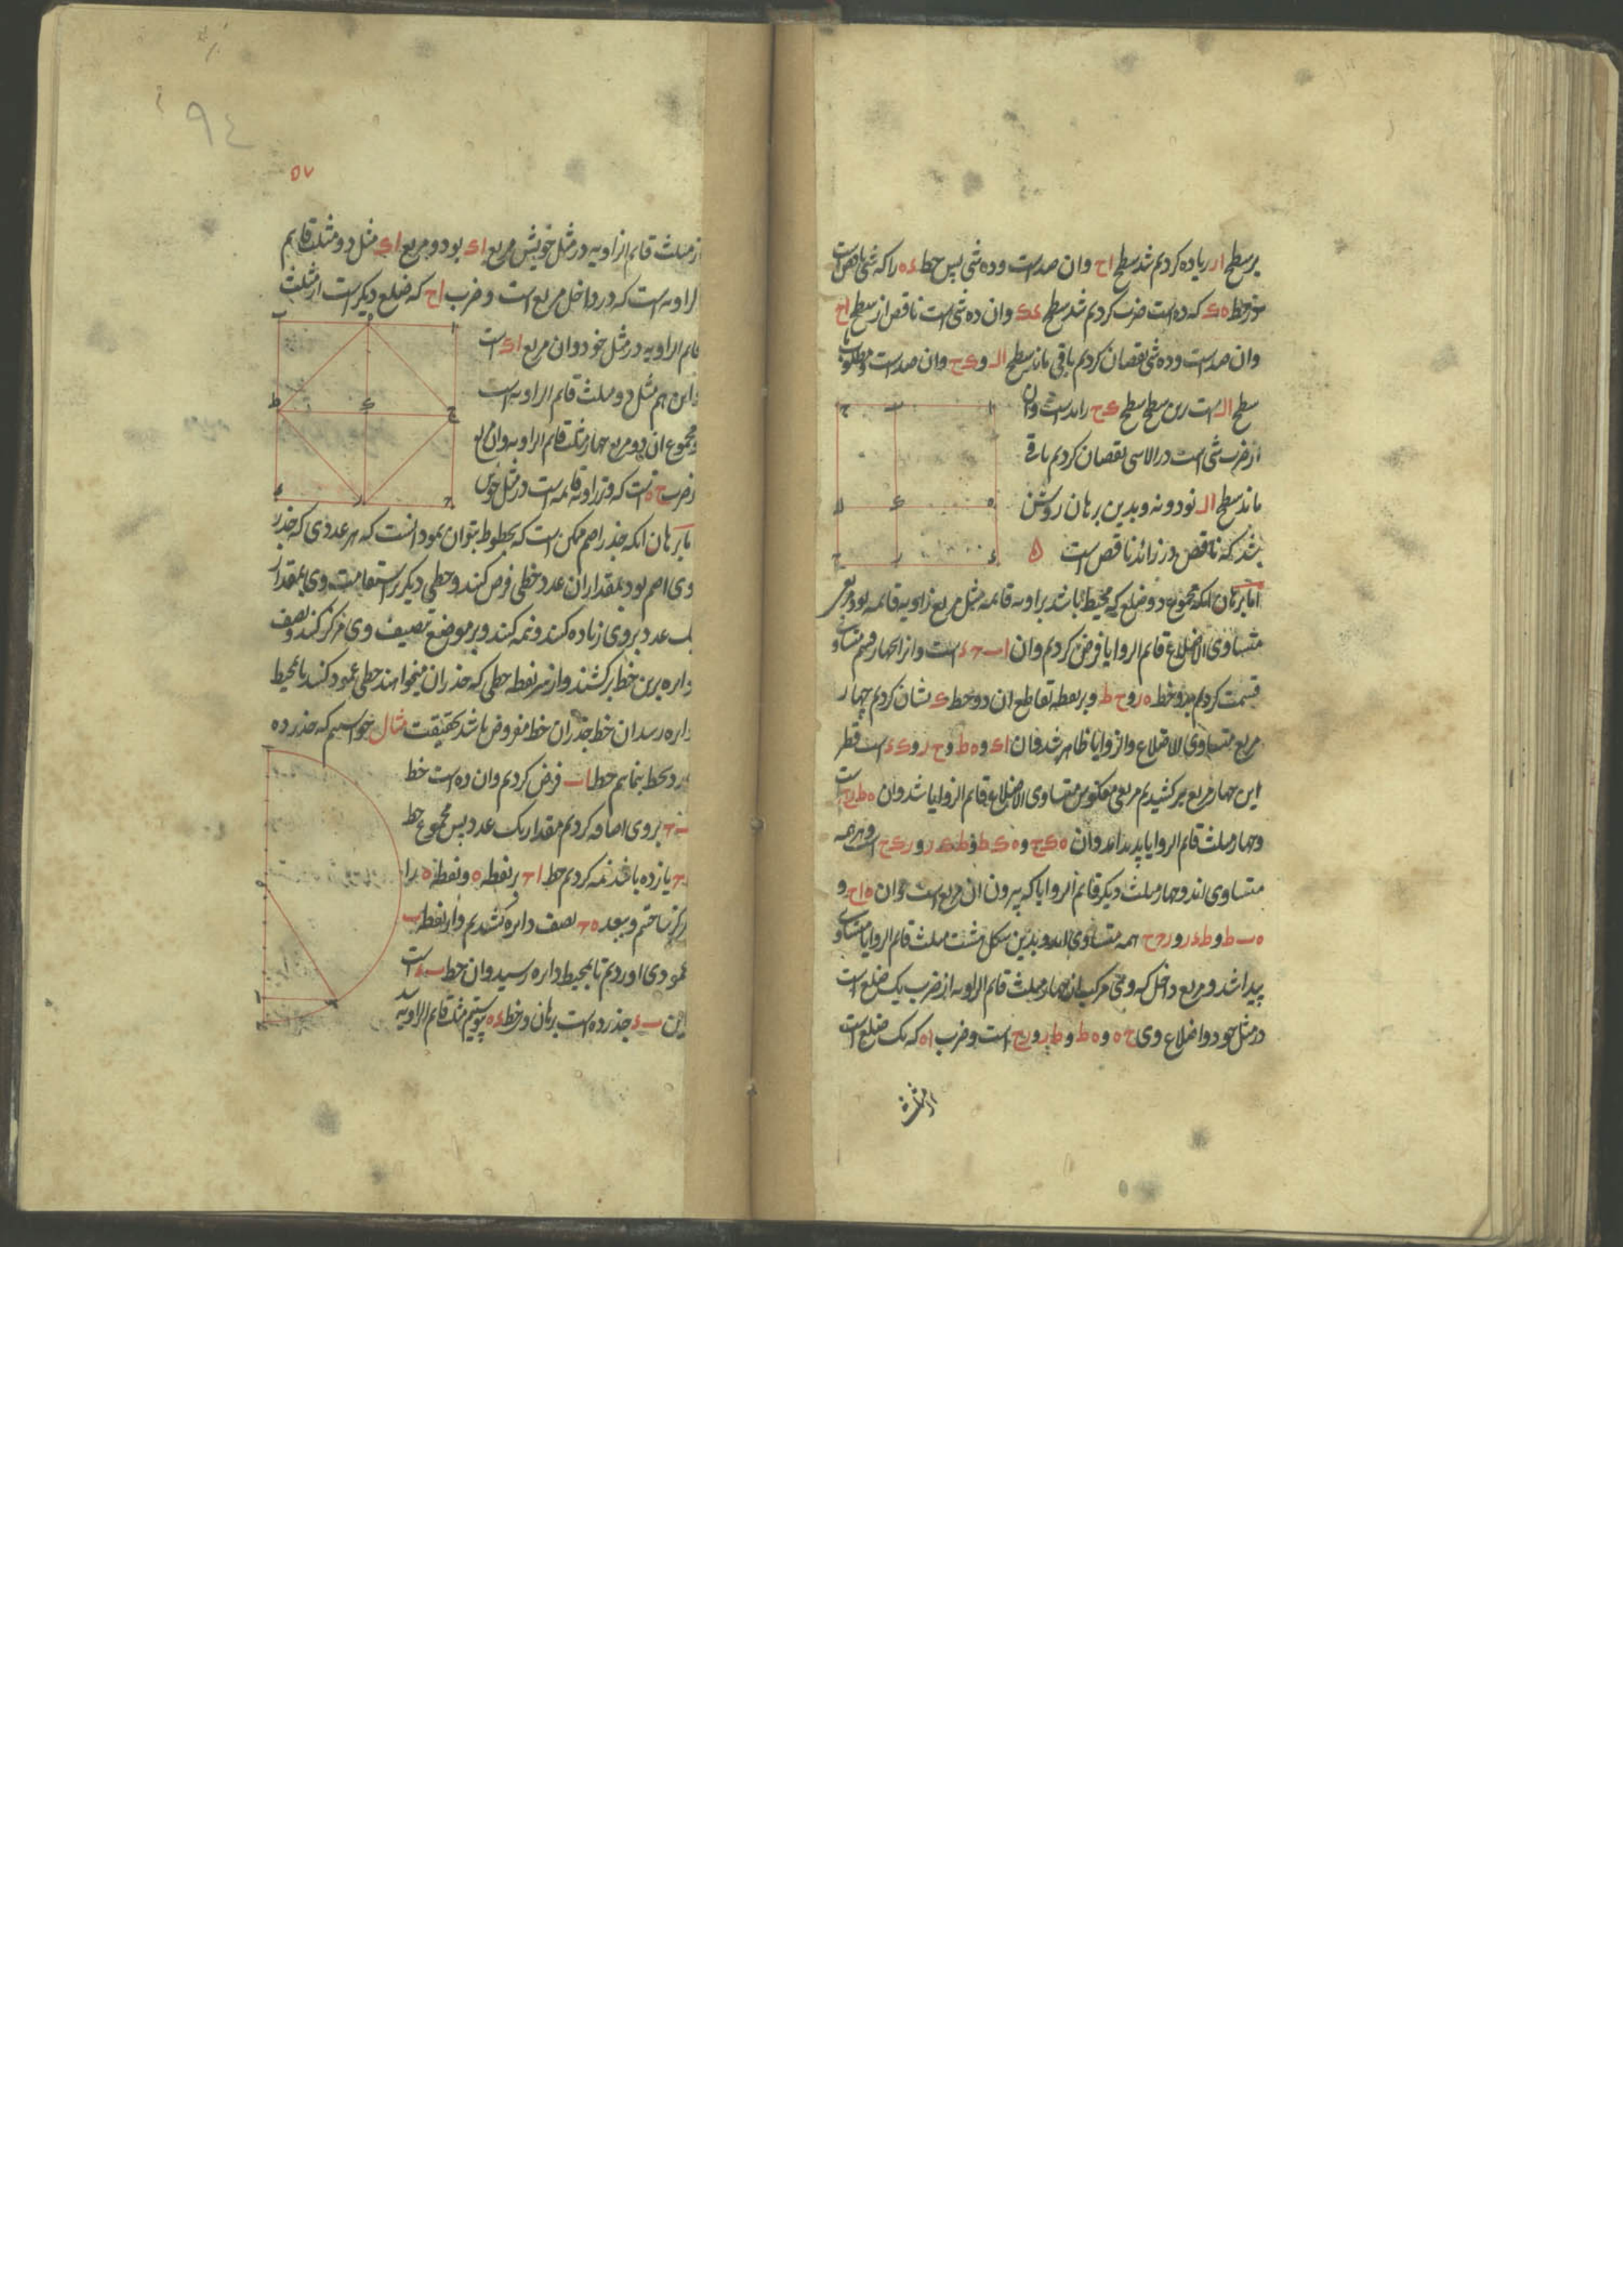 بر سطح ار زیاده کردیم شد سطح اح وان صد است وده شی پس خط ءه را که شی ناقص است
در خط ه ک که ده است ضرب کردیم شد سطح ءک وان ده شی است ناقص از سطح اح
وان صد است وده شی نقصان کردیم باقی ماند سطح ال و ک ح وان صد است ومطلوب ما
سطح ال است سطح ک ح زاید است وان
از ضرب شی است در لاشی نقصان کردیم باقی
ماند سطح ال نود ونه وبدین برهان روشن
شد که ناقص در زائد ناقص است ه
اما برهان انکه مجموع دو ضلع که محیط باشد بزاویه قایمه مثل مربع زاویه قایمه بود مربعی
متساوی الاضلاع قایم الزوایا فرض کردیم وان ا ب ح ء است وانرا بچهار قسم متساوی
قسمت کردیم بدو خط ه ر و ح ط وبر نقطه تقاطع ان دو خط ک نشان کردیم چهار
مربع متساوی الاضلاع والزوایا ظاهر شد وان اک و ه ط و ح ر و ک ء است قطر
این چهار مربع بر کشیدیم مربعی معکوس متساوی الاضلاع قایم الزوایا شد وان ه ط ر ح است
وچهار مثلث قایم الزوایا پدید امد وان ه ک ح و ه ک ط و ط ک ر و ر ک ح است وهر چهار
متساوی اند وچهار مثلث دیگر قایم الزوایا که بیرون ان مربع است وان ه ا ح و
ه ب ط و ط ء ر و ر ح ح همه متساوی اند وبدین شکل هشت مثلث قایم الزوایا متساوی
پیدا شد ومربع داخل که وی مرکب از چهار مثلث قایم الزاویه از ضرب یک ضلع است
در مثل خود واضلاع وی ح ه و ه ط و ط ر و ر ح است وضرب ا ه که یک ضلع است
از مثلث
۵۷
۹٤
از مثلث قایم الزاویه در مثل خویش مربع اک بود ومربع اک مثل دو مثلث قایم
الزاویه است که در داخل مربع است وضرب اح که ضلع دیگر است از مثلث
قایم الزاویه در مثل خود وان مربع اک است
واین هم مثل دو مثلث قایم الزاویه است
ومجموع ان دو مربع چهار مثلث قایم الزاویه وان مربع
ضرب ح ه است که وتر زاویه قایمه است در مثل خویش
اما برهان انکه جذر اصم ممکن است که بخطوط بتوان نمود انست که هر عددی که جذر
وی اصم بود بمقدار ان عدد خطی فرض کنند وخطی دیگر بر استقامت وی بمقدار
یک عدد بروی زیاده کنند ونیمه کنند وبر موضع تنصیف وی مرکز کنند ونصف
دایره برین خط برکشند واز سر نقطه خطی که جذر ان میخواهند خطی عمود کنند تا بمحیط
دایره رسد ان خط جذر ان خط مفروض باشد بحقیقت مثال خواستیم که جذر ده
بخط بنماییم خط اب فرض کردیم وان ده است خط
ب ح بروی اضافه کردیم مقدار یک عدد پس مجموع خط
اح یازده باشد نیمه کردیم خط اح بر نقطه ه ونقطه ه را
مرکز ساختیم وببعد ه ح نصف دایره کشدیم واز نقطه ب
عمودی اوردیم تا بمحیط دایره رسید وان خط ب ء است
این ب ء جذر ده است برهان در خط ء ه پیوستیم مثلث قایم الزاویه